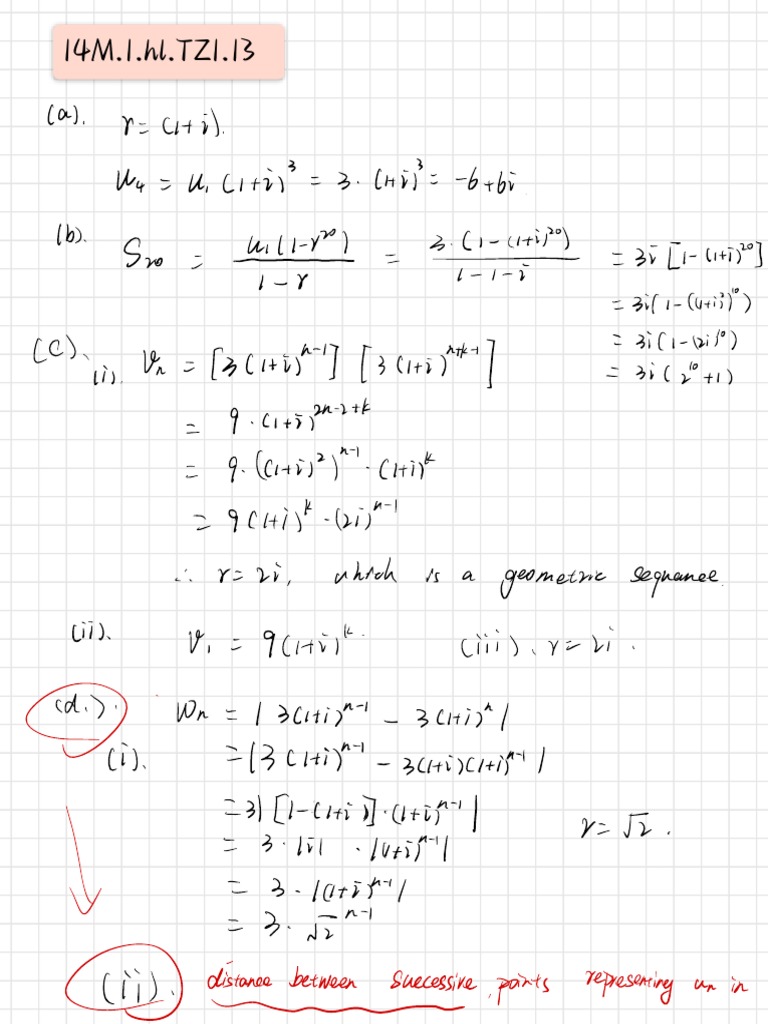 14M.1.hl.TZ1.13
(a). r = (1+i).
u₄ = u₁(1+i)³ = 3·(1+i)³ = -6+6i
(b). S₂₀ = u₁(1-r²⁰)/1-r = 3·(1-(1+i)²⁰)/1-1-i = 3i[1-(1+i)²⁰]
= 3i(1-((1+i)²)¹⁰)
= 3i(1-(2i)¹⁰)
= 3i(2¹⁰+1)
(C). (i). vₙ = [3(1+i)ⁿ⁻¹] [3(1+i)ⁿ⁺ᵏ⁻¹]
= 9·(1+i)²ⁿ⁻²⁺ᵏ
= 9·((1+i)²)ⁿ⁻¹·(1+i)ᵏ
= 9(1+i)ᵏ·(2i)ⁿ⁻¹
∴ r=2i, which is a geometric sequance.
(ii). v₁ = 9(1+i)ᵏ. (iii). r=2i.
(d.). wₙ = |3(1+i)ⁿ⁻¹ - 3(1+i)ⁿ|
(i). = |3(1+i)ⁿ⁻¹ - 3(1+i)(1+i)ⁿ⁻¹|
= 3|[1-(1+i)]·(1+i)ⁿ⁻¹|
= 3·|i|·|(1+i)ⁿ⁻¹| r=√2.
= 3·|(1+i)ⁿ⁻¹|
= 3·√2ⁿ⁻¹
(ii). distance between successive points representing uₙ in